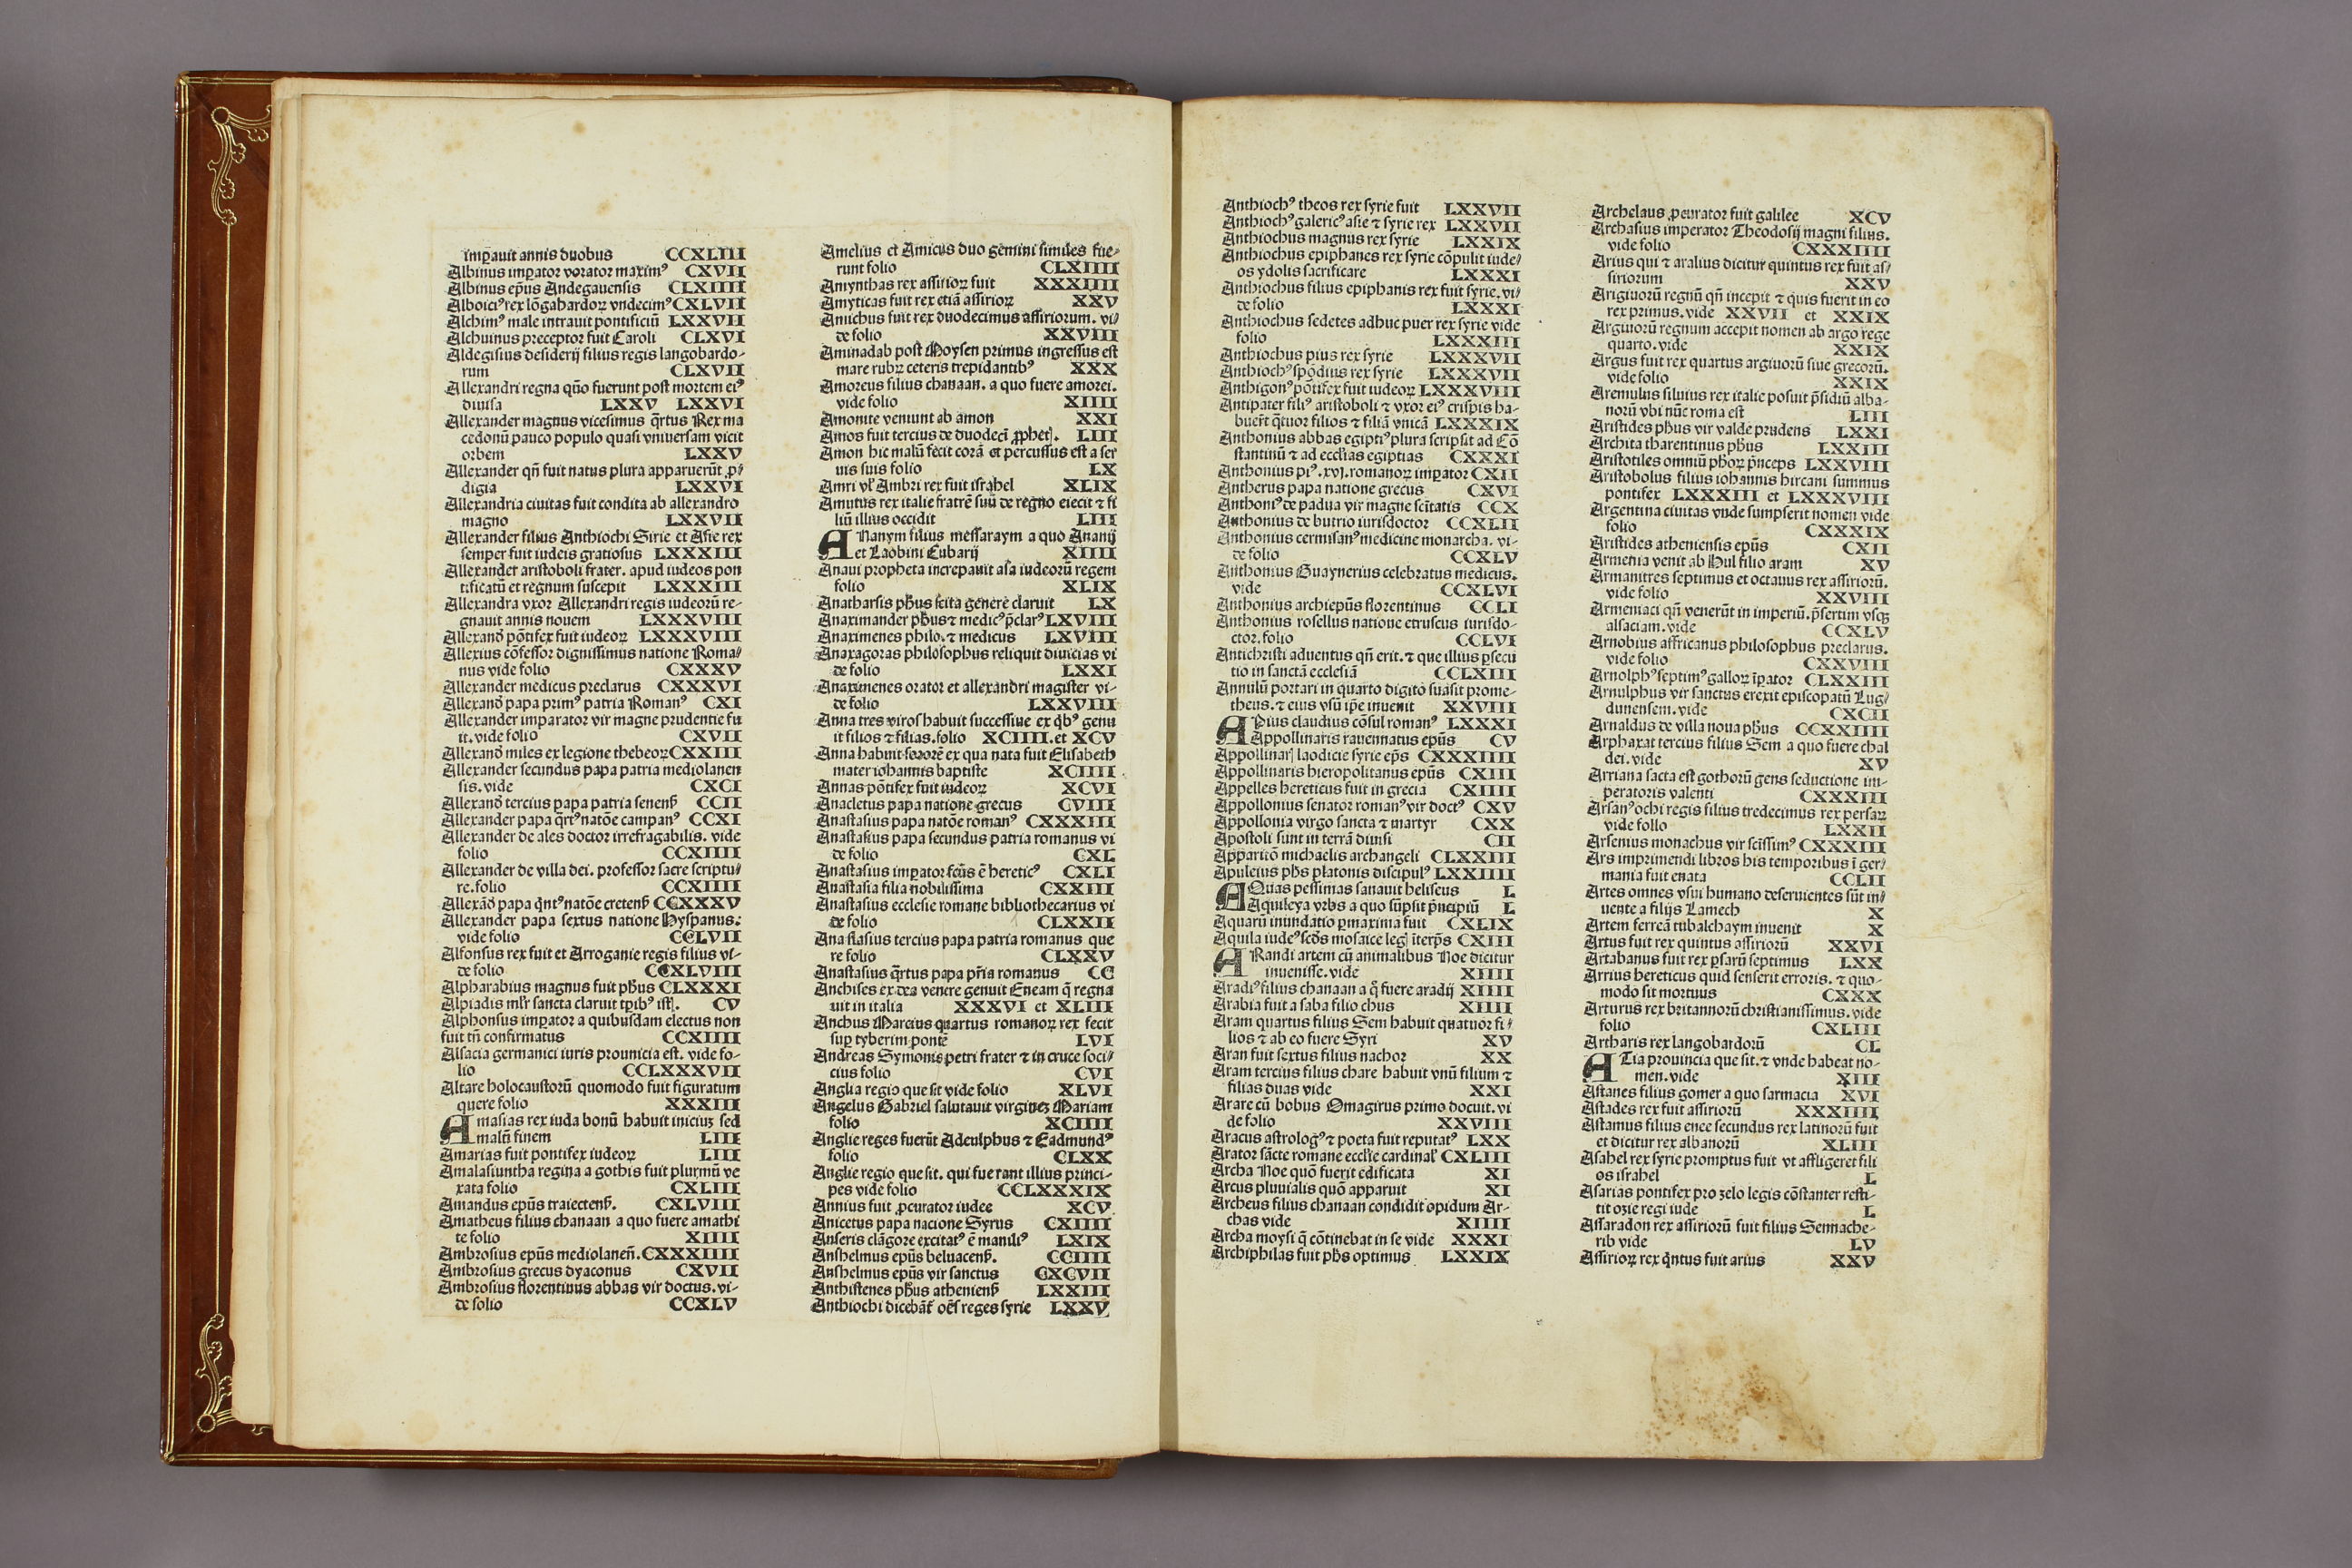 imꝑauit annis duobus CCXLIII
Albinus imꝑator vorator maximꝰ CXVII
Albinus ep̃us Andegauensis CLXIIII
Alboicꝰ rex lõgabardoꝝ vndecimꝰ CXLVII
Alchimꝰ male intrauit pontificiũ LXXVII
Alchuinus preceptor fuit Caroli CLXVI
Aldegisius desiderij filius regis langobardo-
rum CLXVII
Allexandri regna qño fuerunt post mortem eiꝰ
diuisa LXXV LXXVI
Allexander magnus vicesimus q̃rtus Rex ma
cedonũ pauco populo quasi vniuersam vicit
orbem LXXV
Allexander qñ fuit natus plura apparuerũt ꝓ-
digia LXXVI
Allexandria ciuitas fuit condita ab allexandro
magno LXXVII
Allexander filius Anthiochi Sirie et Asie rex
semper fuit iudeis gratiosus LXXXIII
Allexander aristoboli frater. apud iudeos pon
tificatũ et regnum suscepit LXXXIII
Allexandra vxor Allexandri regis iudeorũ re-
gnauit annis nouem LXXXVIII
Allexand̃ põtifex fuit iudeoꝝ LXXXVIII
Allexius cõfessor dignissimus natione Roma-
nus vide folio CXXXV
Allexander medicus preclarus CXXXVI
Allexand̃ papa primꝰ patria Romanꝰ CXI
Allexander imparator vir magne prudentie fu
it. vide folio CXVII
Allexand̃ miles ex legione thebeoꝝ CXXIII
Allexander secundus papa patria mediolanen
sis. vide CXCI
Allexand̃ tercius papa patria senenß CCII
Allexander papa q̃rtꝰ natõe campanꝰ CCXI
Allexander de ales doctor irrefragabilis. vide
folio CCXIIII
Allexander de villa dei. professor sacre scriptu-
re. folio CCXIIII
Allexãd̃ papa q̃ntꝰ natõe cretenß CCXXXV
Allexander papa sextus natione Hyspanus:
vide folio CCLVII
Alfonsus rex fuit et Arroganie regis filius vi-
de folio CCXLVIII
Alpharabius magnus fuit pħus CLXXXI
Alpiadis ml̃r sancta claruit tꝑibꝰ istꝭ. CV
Alphonsus imꝑator a quibusdam electus non
fuit tñ confirmatus CCXIIII
Alsacia germanici iuris prouincia est. vide fo-
lio CCLXXXVII
Altare holocaustorũ quomodo fuit figuratum
quere folio XXXIII
Amasias rex iuda bonũ habuit iniciuꝫ sed
malũ finem LIII
Amarias fuit pontifex iudeoꝝ LIII
Amalasiuntha regina a gothis fuit plurimũ ve
xata folio CXLIII
Amandus ep̃us traiectenß. CXLVIII
Amatheus filius chanaan a quo fuere amathi
te folio XIIII
Ambrosius ep̃us mediolaneñ. CXXXIIII
Ambrosius grecus dyaconus CXVII
Ambrosius florentinus abbas vir doctus. vi-
de folio CCXLV
Amelius et Amicus duo gemini similes fue-
runt folio CLXIIII
Amynthas rex assirioꝝ fuit XXXIIII
Amyticas fuit rex etiã assirioꝝ XXV
Amichus fuit rex duodecimus assiriorum. vi-
de folio XXVIII
Aminadab post Moysen primus ingressus est
mare rubꝝ ceteris trepidantibꝰ XXX
Amoreus filius chanaan. a quo fuere amorei.
vide folio XIIII
Amonite veniunt ab amon XXI
Amos fuit tercius de duodeci ꝓphetꝭ. LIII
Amon hic malũ fecit corã et percussus est a ser
uis suis folio LX
Amri vl̃ Ambri rex fuit israhel XLIX
Amutus rex italie fratrẽ suũ de regno eiecit ⁊ fi
liũ illius occidit LIII
ANanym filius messaraym a quo Ananij
et Laobini Cubarij XIIII
Anaui propheta increpauit asa iudeorũ regem
folio XLIX
Anatharsis pħus scita genere claruit LX
Anaximander pħus ⁊ medicꝰ p̃clarꝰ LXVIII
Anaximenes philo. ⁊ medicus LXVIII
Anaxagoras philosophus reliquit diuicias vi
de folio LXXI
Anaximenes orator et allexandri magister vi-
de folio LXXVIII
Anna tres viros habuit successiue ex q̃bꝰ genu
it filios ⁊ filias. folio XCIIII. et XCV
Anna habuit sororẽ ex qua nata fuit Elisabeth
mater iohannis baptiste XCIIII
Annas põtifex fuit iudeoꝝ XCVI
Anacletus papa natione grecus CVIII
Anastasius papa natõe romanꝰ CXXXIII
Anastasius papa secundus patria romanus vi
de folio CXL
Anastasius imꝑator fcũs ẽ hereticꝰ CXLI
Anastasia filia nobilissima CXXIII
Anastasius ecclesie romane bibliothecarius vi
de folio CLXXII
Ana stasius tercius papa patria romanus que
re folio CLXXV
Anastasius q̃rtus papa pr̃ia romanus CC
Anchises ex dea venere genuit Eneam q̃ regna
uit in italia XXXVI et XLIII
Anchus Marcius quartus romanoꝝ rex fecit
suꝑ tyberim pontẽ LVI
Andreas Symonis petri frater ⁊ in cruce soci-
cius folio CVI
Anglia regio que sit vide folio XLVI
Angelus Gabriel salutauit virgineꝫ Mariam
folio XCIIII
Anglie reges fuerũt Adeulphus ⁊ Eadmundꝰ
folio CLXX
Anglie regio que sit. qui fue rant illius princi-
pes vide folio CCLXXXIX
Annius fuit ꝓcurator iudee XCV
Anicetus papa nacione Syrus CXIIII
Anseris clãgore excitatꝰ ẽ manliꝰ LXIX
Anshelmus ep̃us beluacenß. CCIIII
Anshelmus ep̃us vir sanctus CXCVII
Anthistenes pħus athenienß LXXIII
Anthiochi dicebãt̃ oẽs reges syrie LXXV
Anthiochꝰ theos rex syrie fuit LXXVII
Anthiochꝰ galericꝰ asie ⁊ syrie rex LXXVII
Anthiochus magnus rex syrie LXXIX
Anthiochus epiphanes rex syrie cõpulit iude-
os ydolis sacrificare LXXXI
Anthiochus filius epiphanis rex fuit syrie. vi-
de folio LXXXI
Anthiochus sedetes adhuc puer rex syrie vide
folio LXXXIII
Anthiochus pius rex syrie LXXXVII
Anthiochꝰ spõdius rex syrie LXXXVII
Anthigonꝰ põtifex fuit iudeoꝝ LXXXVIII
Antipater filiꝰ aristoboli ⁊ vxor eiꝰ crispis ha-
buer̃t q̃tuor filios ⁊ filiã vnicã LXXXIX
Anthonius abbas egiptiꝰ plura scripsit ad Cõ
stantinũ ⁊ ad ecclias egiptias CXXXI
Anthonius piꝰ .xvj. romanoꝝ imꝑator CXII
Antherus papa natione grecus CXVI
Anthoniꝰ de padua vir magne scĩtatis CCX
Anthonius de butrio iurisdoctor CCXLII
Anthonius cermisanꝰ medicine monarcha. vi-
de folio CCXLV
Anthonius Guaynerius celebratus medicus.
vide CCXLVI
Anthonius archiep̃us florentinus CCLI
Anthonius rosellus natione etruscus iurisdo-
ctor. folio CCLVI
Antichristi aduentus qñ erit. ⁊ que illius ꝑsecu
tio in sanctã ecclesiã CCLXIII
Annulũ portari in quarto digito suasit prome-
theus. ⁊ eius vsũ ip̃e inuenit XXVIII
APius claudius cõsul romanꝰ LXXXI
Appollinaris rauennatus ep̃us CV
Appollinarꝭ laodicie syrie ep̃s CXXXIIII
Appollinaris hieropolitanus ep̃us CXIII
Appelles hereticus fuit in grecia CXIIII
Appollonius senator romanꝰ vir doctꝰ CXV
Appollonia virgo sancta ⁊ martyr CXX
Apostoli sunt in terrã diuisi CII
Apparitõ michaelis archangeli CLXXIII
Apuleius pħs platonis discipulꝰ LXXIIII
AQuas pessimas sanauit heliseus L
Aquileya vrbs a quo sũpsit p̃ncipiũ L
Aquarũ inundatio ꝑmaxima fuit CXLIX
Aquila iudeꝰ scd̃s mosaice legꝭ iterp̃s CXIII
ARandi artem cũ animalibus Noe dicitur
inuenisse. vide XIIII
Aradiꝰ filius chanaan a q̃ fuere aradij XIIII
Arabia fuit a saba filio chus XIIII
Aram quartus filius Sem habuit quatuor fi-
lios ⁊ ab eo fuere Syri XV
Aran fuit sextus filius nachor XX
Aram tercius filius chare habuit vnũ filium ⁊
filias duas vide XXI
Arare cũ bobus Omagirus primo docuit. vi
de folio XXVIII
Aracus astrologꝰ ⁊ poeta fuit reputatꝰ LXX
Arator sãcte romane eccl̃ie cardinal̃ CXLIII
Archa Noe quõ fuerit edificata XI
Arcus pluuialis quõ apparuit XI
Archeus filius chanaan condidit opidum Ar-
chas vide XIIII
Archa moysi q̃ cõtinebat in se vide XXXI
Archiphilas fuit pħs optimus LXXIX
Archelaus ꝓcurator fuit galilee XCV
Archasius imperator Theodosij magni filius.
vide folio CXXXIIII
Arius qui ⁊ aralius dicitur quintus rex fuit as-
siriorum XXV
Arigiuorũ regnũ qñ incepit ⁊ quis fuerit in eo
rex primus. vide XXVII et XXIX
Arguiorũ regnum accepit nomen ab argo rege
quarto. vide XXIX
Argus fuit rex quartus argiuorũ siue grecorũ.
vide folio XXIX
Aremulus siluius rex italie posuit p̃sidiũ alba-
norũ vbi nũc roma est LIII
Aristides pħus vir valde prudens LXXI
Archita tharentinus pħus LXXIII
Aristotiles omniũ pħoꝝ p̃nceps LXXVIII
Aristobolus filius iohannis hircani summus
pontifex LXXXIII et LXXXVIII
Argentina ciuitas vnde sumpserit nomen vide
folio CXXXIX
Aristides atheniensis ep̃us CXII
Armenia venit ab Hul filio aram XV
Armanitres septimus et octauus rex assiriorũ.
vide folio XXVIII
Armeniaci qñ venerũt in imperiũ. p̃sertim vsqꝫ
alsaciam. vide CCXLV
Arnobius affricanus philosophus preclarus.
vide folio CXXVIII
Arnolphꝰ septimꝰ galloꝝ iꝑator CLXXIII
Arnulphus vir sanctus erexit episcopatũ Lug-
dunensem. vide CXCII
Arnaldus de villa noua pħus CCXXIIII
Arphaxat tercius filius Sem a quo fuere chal
dei. vide XV
Arriana facta est gothorũ gens seductione im-
peratoris valenti CXXXIII
Arsanꝰ ochi regis filius tredecimus rex persaꝝ
vide folio LXXII
Arsenius monachus vir scĩssimꝰ CXXXIII
Ars imprimendi libros his temporibus ĩ ger-
mania fuit enata CCLII
Artes omnes vsui humano deseruientes sũt in-
uente a filijs Lamech X
Artem ferreã tubalchaym inuenit X
Artus fuit rex quintus assiriorũ XXVI
Artabanus fuit rex ꝑsarũ septimus LXX
Arrius hereticus quid senserit erroris. ⁊ quo-
modo sit mortuus CXXX
Arturus rex britannorũ christianissimus. vide
folio CXLIII
Artharis rex langobardorũ CL
ATia prouincia que sit. ⁊ vnde habeat no-
men. vide XIII
Astanes filius gomer a quo sarmacia XVI
Astades rex fuit assiriorũ XXXIIII
Astamus filius enee secundus rex latinorũ fuit
et dicitur rex albanorũ XLIII
Asahel rex syrie promptus fuit vt affligeret fili
os israhel L
Asarias pontifex pro zelo legis cõstanter resti-
tit ozie regi iude L
Assaradon rex assiriorũ fuit filius Sennache-
rib vide LV
Assirioꝝ rex q̃ntus fuit arius XXV